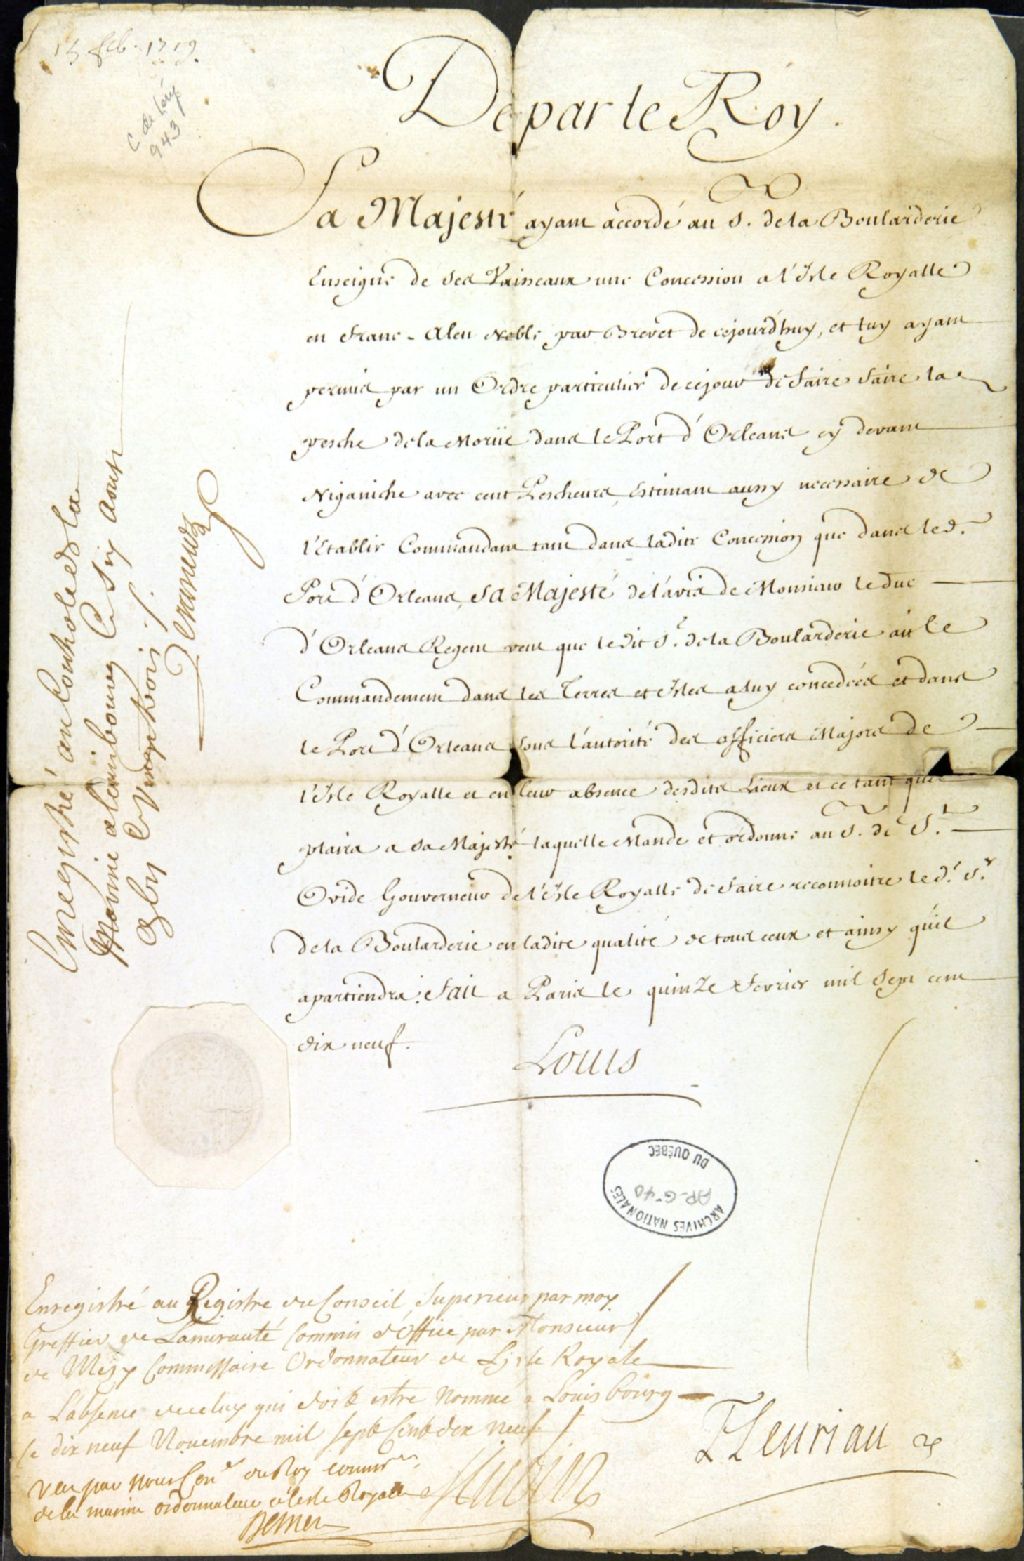 15 feb. 1719.
C de Léry
943
De par le Roy.
Sa Majesté ayant accordé au S. de la Boularderie
Enseigne de ses Vaisseaux une Concession a l'Isle Royalle
en franc-Aleu Noble par Brevet de cejourd'huy, et luy ayant
permis par un Ordre particulier de cejour de faire faire la
pesche de la Moriie dans le Port d'Orleans cy devant
Niganiche avec cent Pescheurs, Estimant aussy necessaire de
l'Etablir Commandant tant dans ladite Concession que dans led.
Port d'Orleans, Sa Majesté de l'avis de Monsieur le Duc
d'Orleans Regent veut que ledit Sr. de la Boularderie ait le
Commandement dans les Terres et Isles a luy concedées et dans
le Port d'Orleans sous l'autorité des officiers Majors de
l'Isle Royalle et en leur absence desdits Lieux et ce tant qu'il
plaira a Sa Majesté laquelle Mande et ordonne au S. de St.
Ovide Gouverneur de l'Isle Royalle de faire reconnoitre led. Sr.
de la Boularderie en ladite qualité de tous ceux et ainsy qu'il
apartiendra; Fait a Paris le quinze fevrier mil sept cent
dix neuf.
Louis
Enregistré au Controle de la
Marine a Louisbourg Ce
ARCHIVES NATIONALES
DU QUÉBEC
AP-G-40
Enregistré au Registre du Conseil Superieur par moy
Greffier de Lamirauté Commis d'office par Monsieur
de Mezy Commissaire Ordonnateur de L'isle Royale
a Labsence de celuy qui doit estre Nommé a Louisbourg
le dix neuf Novembre mil sept Cent dix neuf
Veu par nous Con.er du Roy comm.re
de la marine ordonnateur a l'isle Royalle
Fleuriau